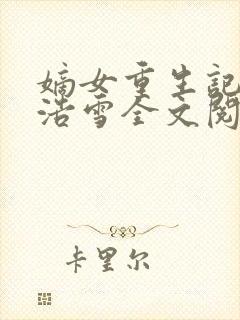 嫡女重生記
浩雪全文閱
卡里尔